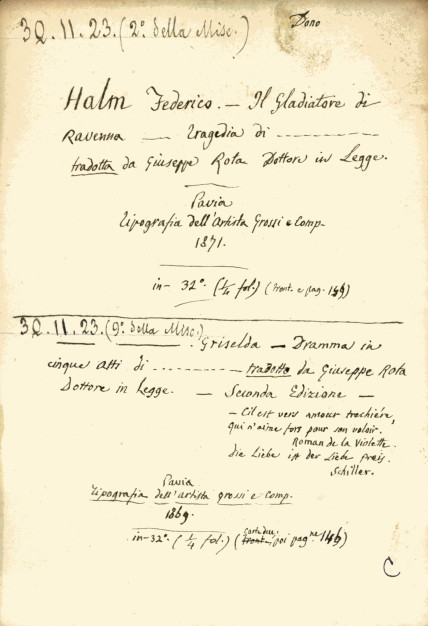 3Q.11.23.(2º. della Misc.)
Dono
Halm Federico. — Il Gladiatore di
Ravenna — tragedia di ------------
tradotta da Giuseppe Rota Dottore in Legge.
Pavia
Tipografia dell'Artista Grossi e Comp.
1871.
in- 32º. (1/4 fol.) (front. e pag.
3Q.11.23.(9º. della Misc.)
Griselda — Dramma in
cinque atti di ------------ tradotto da Giuseppe Rota
Dottore in Legge. — Seconda Edizione —
— Cil est vers amour trachiére,
qui n'aime fors pour son voloir.
Roman de la Violette.
die Liebe ist der Liebe Preis.
Schiller.
Pavia
Tipografia dell'artista grossi e Comp.
1869.
in-32º. (1/4 fol.) (carte due, front. poi pag.ne
C